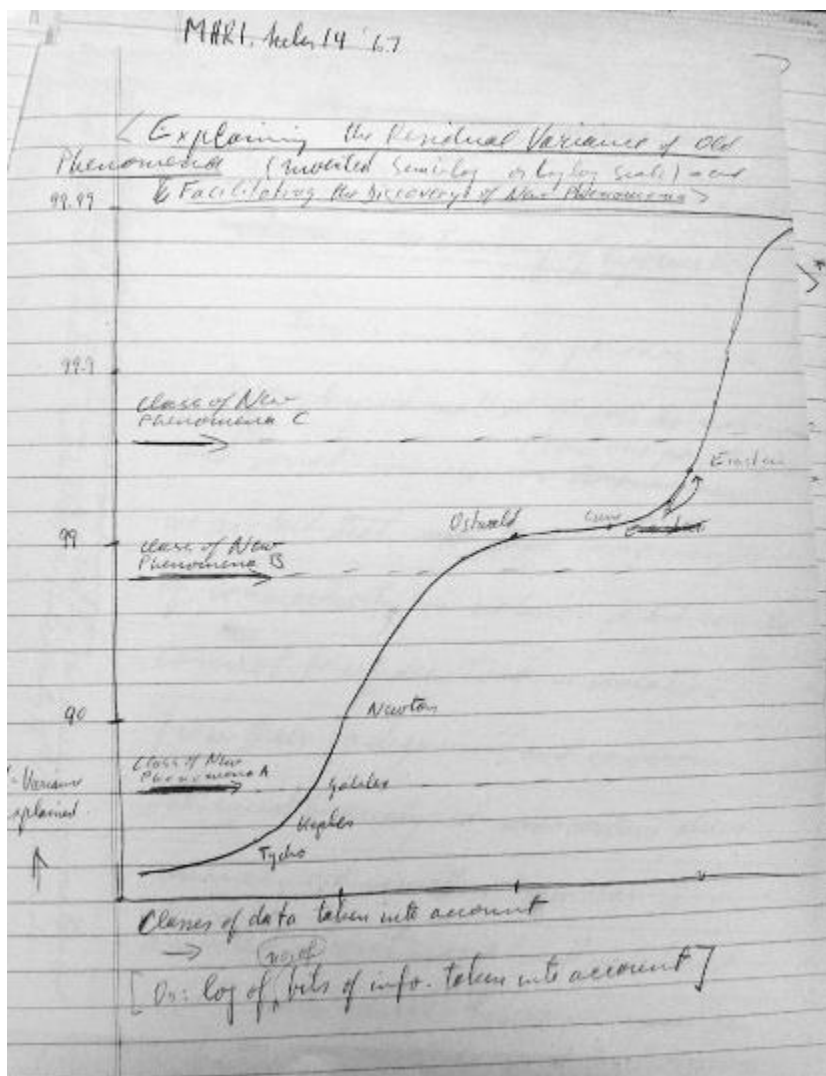 MHRI. 14 '67
< Explaining the Residual Variance of Old
Phenomena (inverted semilog or loglog scale) and
Facilitating the Discovery of New Phenomena >
99.99
99.9
Class of New
Phenomena C
Einstein
Ostwald
99
Class of New
Phenomena B
Newton
90
Class of New
Phenomena A
Galileo
Variance
explained
Kepler
Tycho
Classes of data taken into account
[Or: log of no. of bits of info. taken into account]